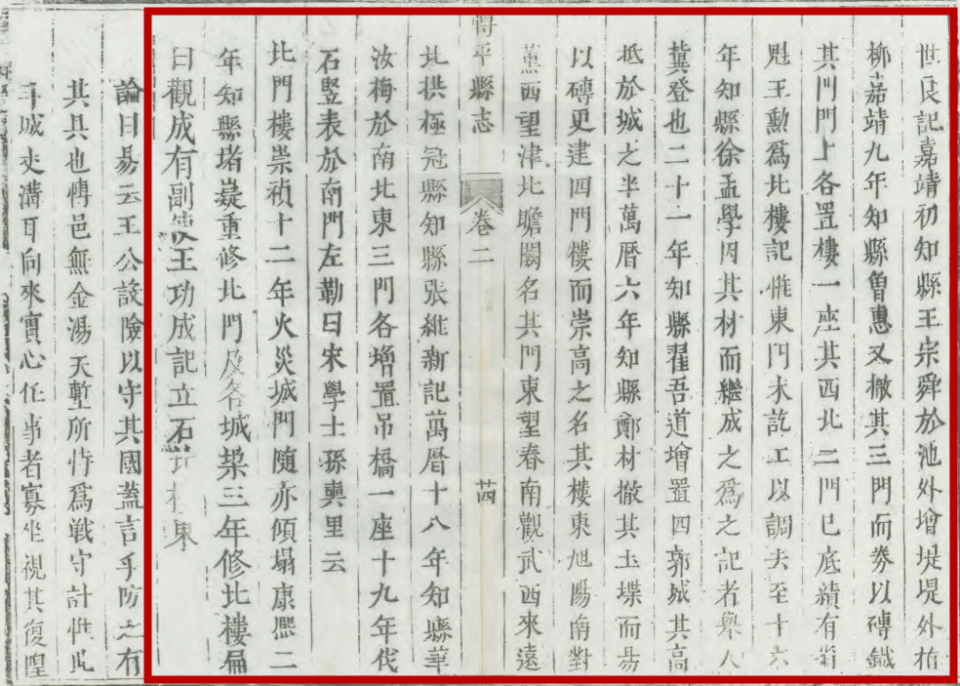 世良記嘉靖初知縣王宗舜於池外增堤堤外植
柳嘉靖九年知縣曾惠又撤其三門而券以磚鐵
其門門上各置樓一座其西北二門已底績有省
魁王勲爲北樓記惟東門未訖工以調去至十六
年知縣徐孟學因其材而繼成之爲之記者舉人
冀登也二十一年知縣翟吾道增置四郭城其高
抵於城之半萬曆六年知縣鄭材撤其土堞而易
以磚更建四門樓而崇高之名其樓東旭陽南對
薰西望津北瞻闕名其門東望春南觀武西來遠
平縣志 卷二 苗
北拱極冠縣知縣張維新記萬曆十八年知縣華
汝梅於南北東三門各增置吊橋一座十九年代
石豎表於南門左勒曰宋學士孫奭里云
北門樓崇禎十二年火災城門隨亦傾塌康熙二
年知縣堵嶷重修北門及各城梁三年修北樓扁
曰觀成有副使王功成記立石北樓東
論曰易云王公設險以守其國蓋言乎防之有
其具也博邑無金湯天塹所恃爲戰守計惟此
耳城史溝耳向來實心任事者寡坐視其復隍